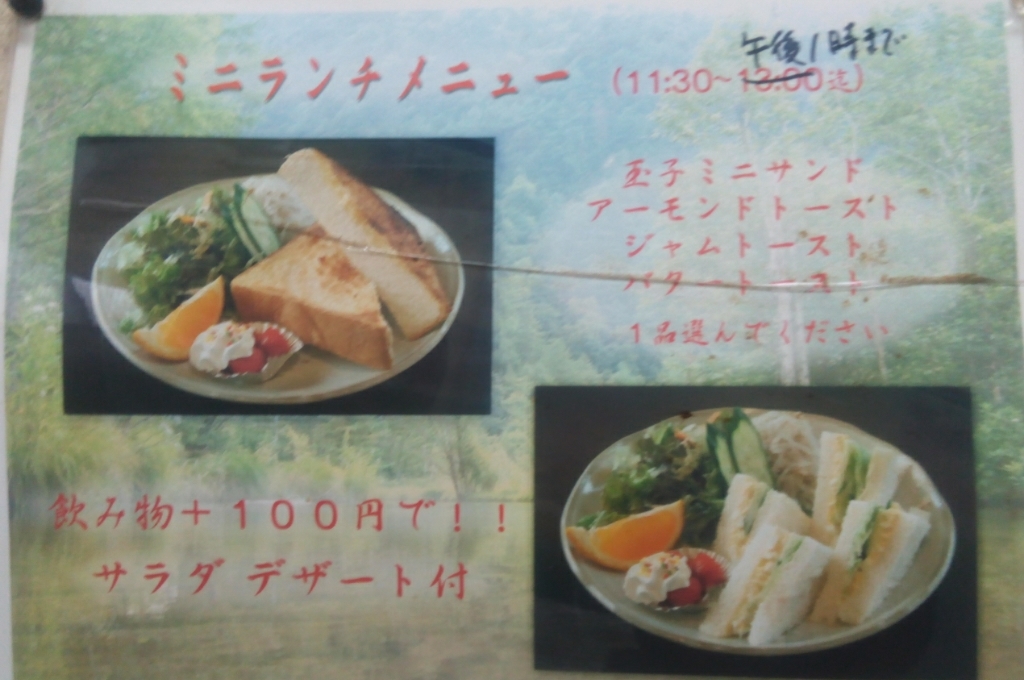 午後1時まで
ミニランチメニュー (11:30~13:00迄)
玉子ミニサンド
アーモンドトースト
ジャムトースト
バタートースト
1品選んでください
飲み物+100円で!!
サラダ デザート付